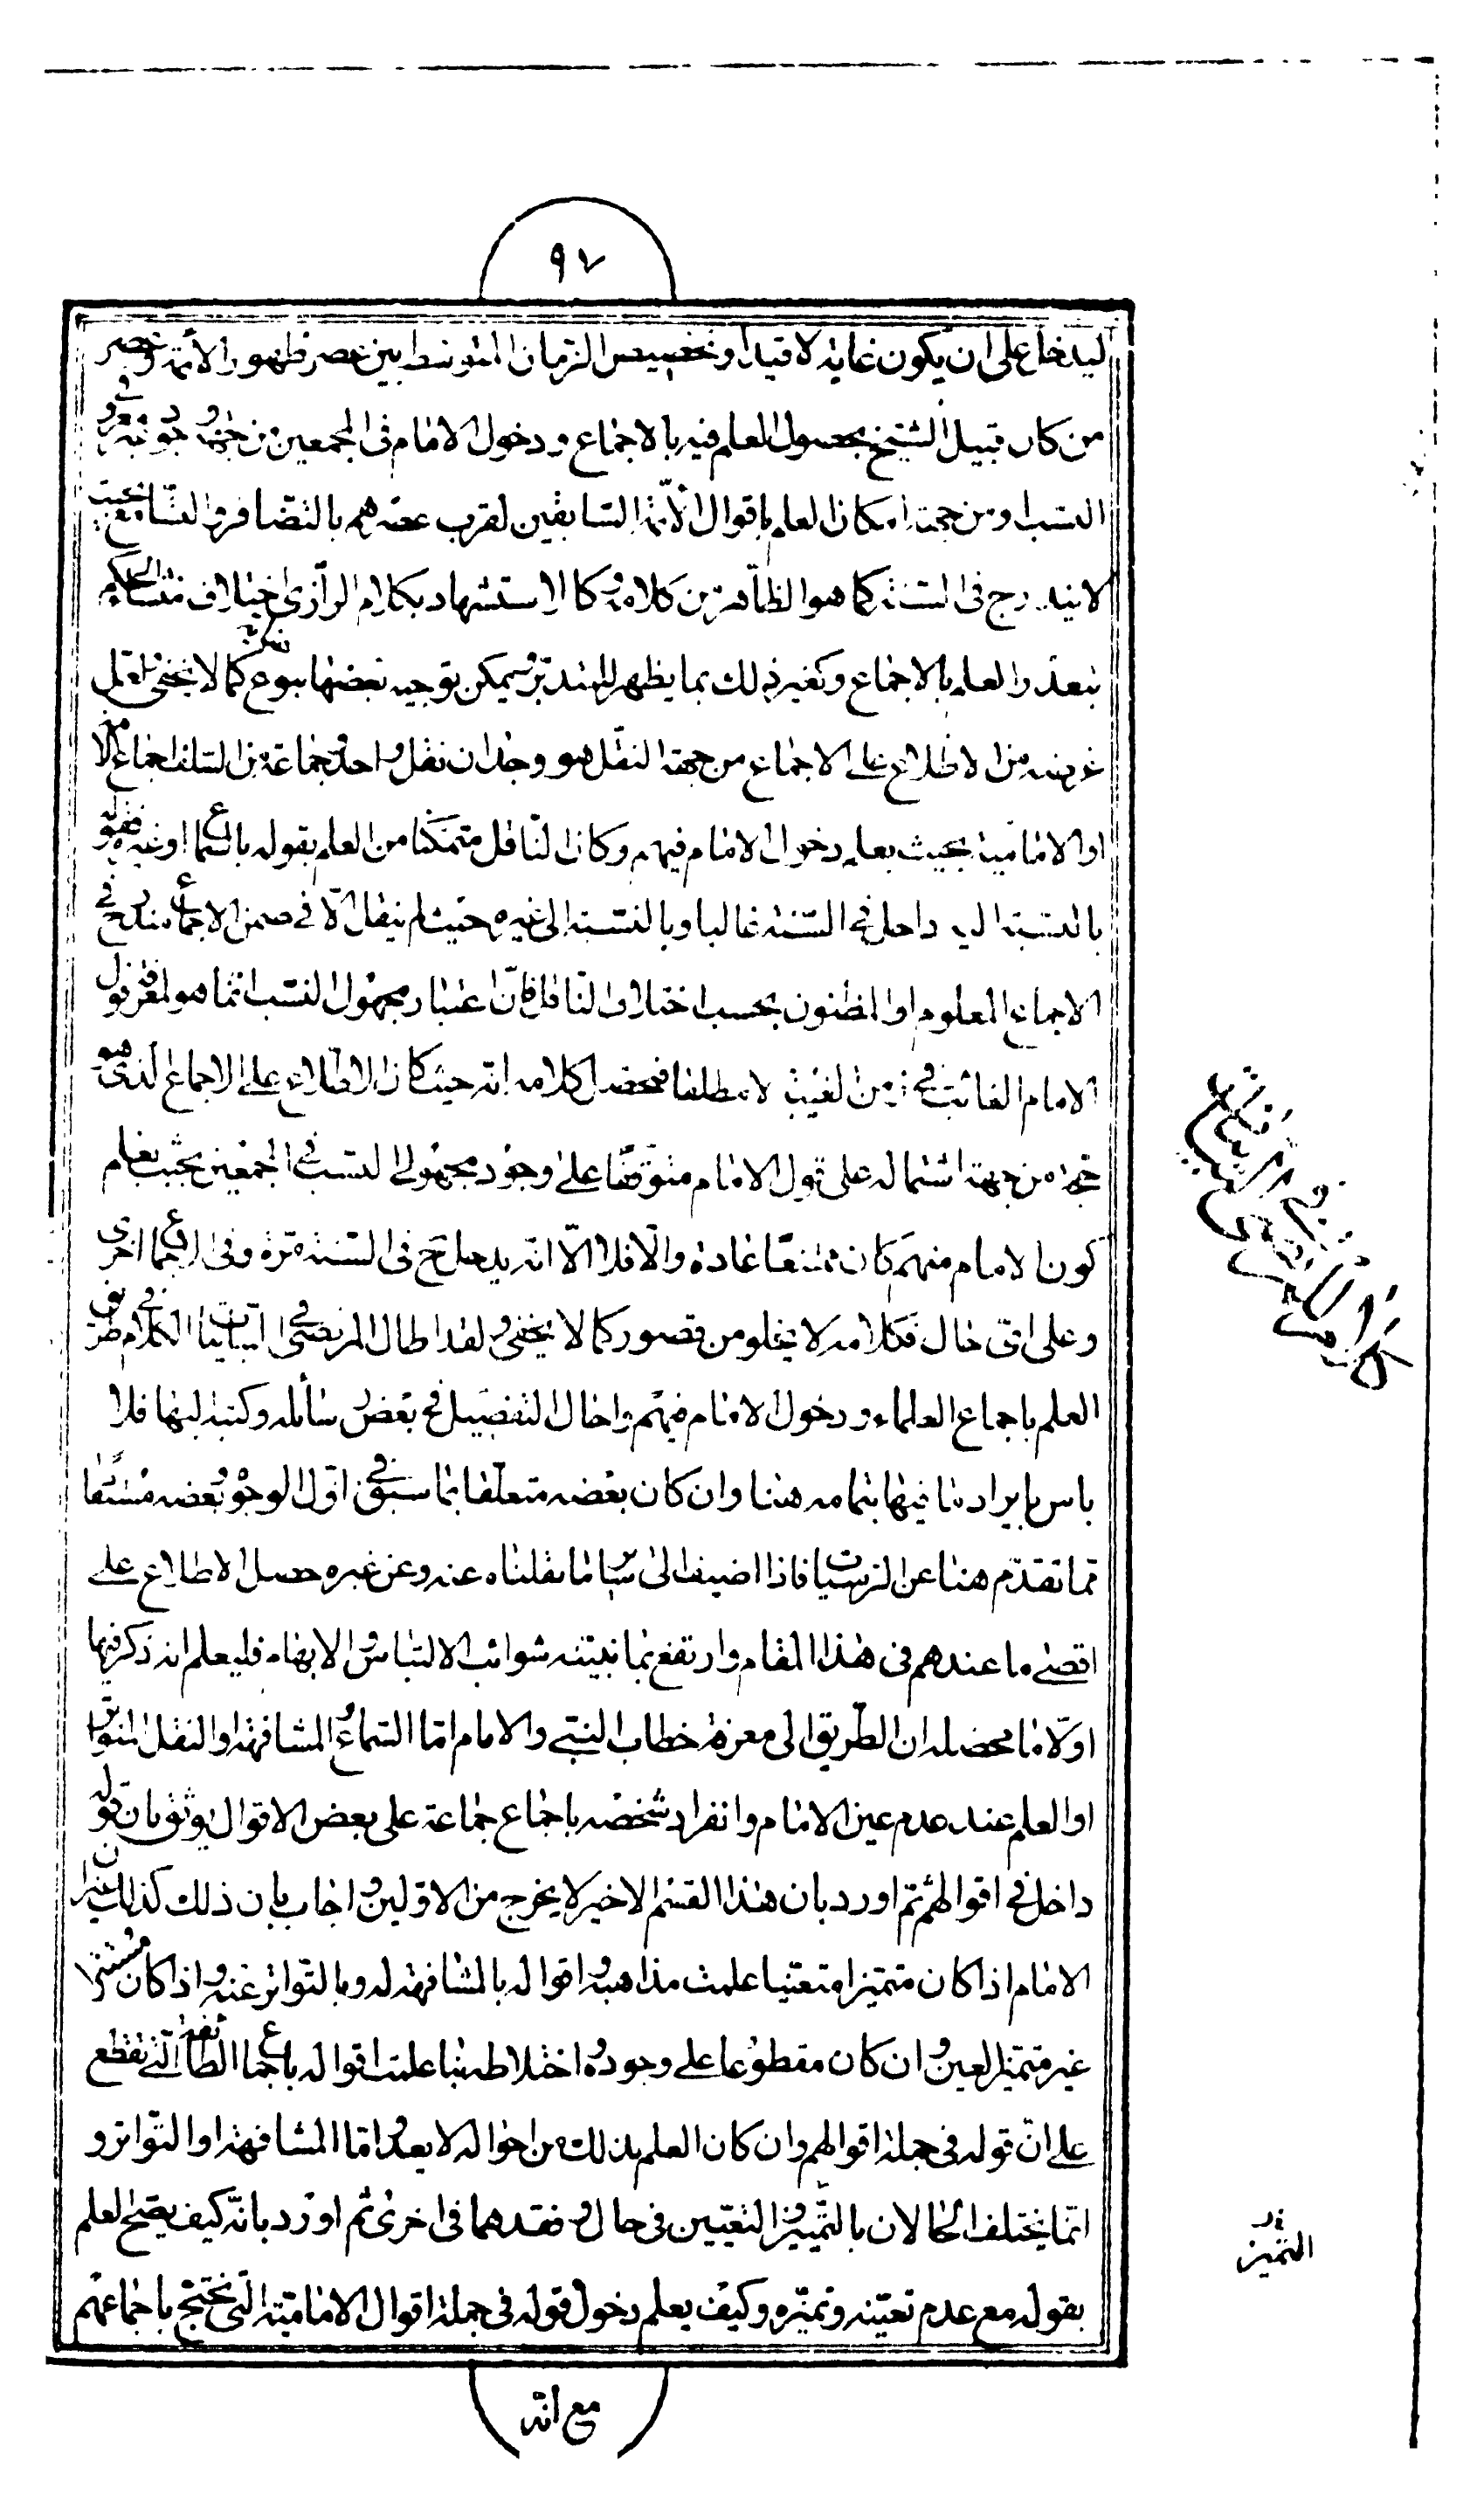 ٩٧
على ان يكون غاية لا قيدا وتخصيص الزمان المتوسط بين عصر ظهور الأئمة وعصر
من كان قبيل الشيخ بحصول العلم فيه بالاجماع و دخول الامام فى المجمعين من جهة
النسب ومن جهة امكان العلم باقوال الأئمة السابقين لقرب عهدهم بالتضافر والتسامع بحيث
لا يندرج فى السنة كما هو الظاهر من كلامه كالاستشهاد بكلام الرازى
بتعذر العلم بالاجماع وكغير ذلك مما يظهر للمتدبر ويمكن توجيه بعضها بنوع كما لا يخفى ولعل
غرضه من الاطلاع على الاجماع من جهة النقل هو وجدان نقل واحد وجماعة من السلف اجماع
او الامامية بحيث يعلم دخول الامام فيهم وكان الناقل متمكنا من العلم بقوله بالسماع او غيره فنقله
بالنسبة اليه داخل فى السنة غالبا وبالنسبة الى غيره حيث لم ينقل الا فى ضمن الاجماع يندرج فى
الاجماع المعلوم او المظنون بحسب اختلاف الناقل فان اعتبار مجهول النسب انما هو لمعرفة قول
الامام الغائب فى زمن الغيبة لا مطلقا فمحصل كلامه انه حيث كان الاطلاع على الاجماع الذى هو
حجة من جهة اشتماله على قول الامام متوقفا على وجود مجهولى النسب فى المجمعين بحيث يعلم
كون الامام منهم كان ممتنعا عادة والا فلا الا انه يدخل ح فى السنة مرة وفى الاجماع اخرى
وعلى اى حال فكلامه لا يخلو من قصور كما لا يخفى ولقد اطال المرتضى فى التبانيات الكلام فى طريق
العلم باجماع العلماء ودخول الامام فيهم واحال التفصيل فى بعض رسائله وكتبه اليها فلا
باس بايراد ما فيها بتمامه هنا وان كان بعضه متعلقا بما سبق فى اول الوجوه وبعضه
مما تقدم هنا عن الرسيات فاذا اضيف الى سائر ما نقلناه عنه وعن غيره حصل الاطلاع على
اقصى ما عندهم فى هذا المقام وارتفع بما نبينه شوائب الالتباس والابهام فليعلم انه ذكر فيها
اولا ما محصله ان الطريق الى معرفة خطاب النبى والامام اما السماع والمشافهة او النقل المتواتر
او العلم عند عدم عين الامام وانفراد شخصه باجماع جماعة على بعض الاقوال يوثق بان قوله
داخل فى اقوالهم ثم اورد بان هذا القسم الاخير لا يخرج من الاولين واجاب بان ذلك كذلك غير ان
الامام اذا كان متميزا متعينا علمت مذاهبه واقواله بالمشافهة له وبالتواتر عنه واذا كان مستترا
غير متميز العين وان كان مقطوعا على وجوده واختلاطه بنا علمت اقواله باجماع الطائفة التى نقطع
على ان قوله فى جملة اقوالهم وان كان العلم بذلك من احواله لا يعدو اما المشافهة او التواتر و
انما يختلف الحالان بالتمييز والتعيين فى حال وفقدهما فى اخرى ثم اورد بانه كيف يصح العلم
بقوله مع عدم تعينه وتميزه وكيف يعلم دخول قوله فى جملة اقوال الامامية التى نحتج باجماعهم
مع انه
التميز